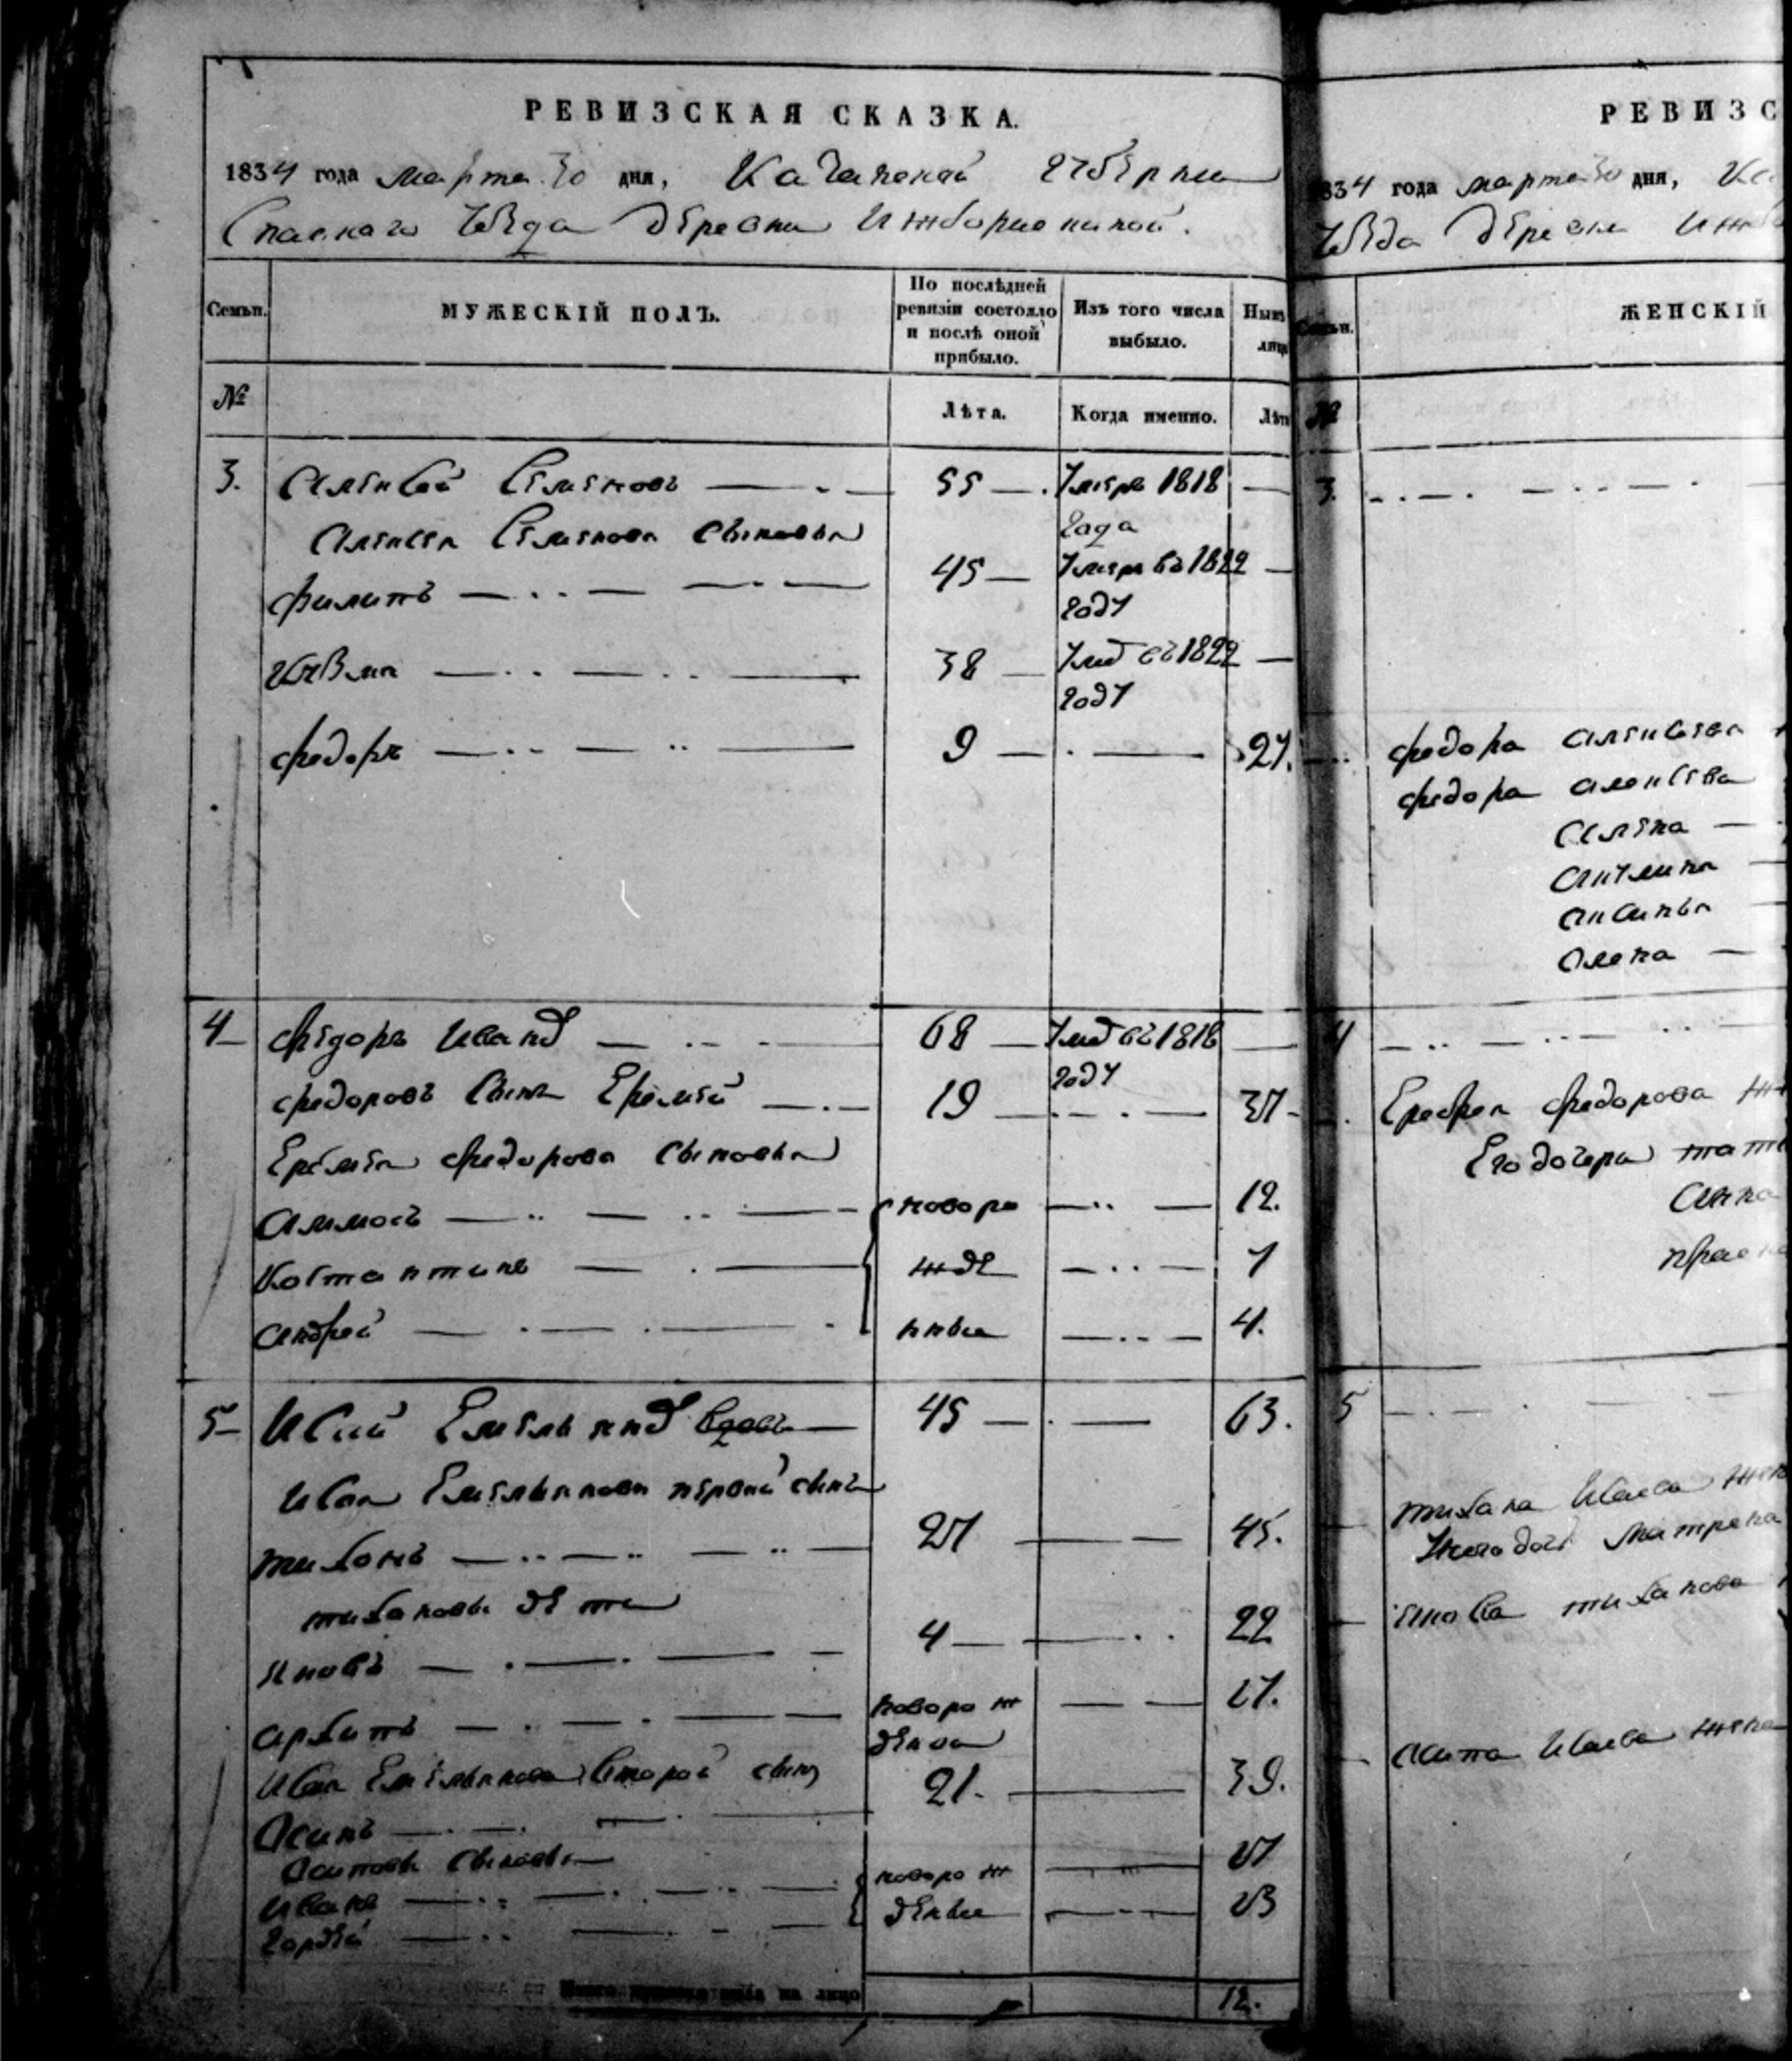 РЕВИЗСКАЯ СКАЗКА.
1834 года марта 30 дня, Казанской губернии
Спаскаго уезда деревни
Семьи.
МУЖЕСКІЙ ПОЛЪ.
По послѣдней ревизіи состояло и послѣ оной прибыло.
Изъ того числа выбыло.
Нынѣ лицо
№
Лѣта.
Когда именно.
Лѣта
3. Алексей Семеновъ 55 Умеръ 1818
года
Алексея Семенова сыновья
Филипъ 45 Умеръ въ 1822
году
Кузма 38 Умеръ въ 1822
году
Федоръ 9 27.
4 Федоръ Иванов 68 Умер въ 1818
году
Федоровъ сынъ Еремей 19 37
Еремея Федорова сыновья
Аммосъ новоро 12.
Костантинъ жде 7
Андрей нныя 4.
5 Исай Емельянов вдовъ 45 63.
Исая Емельянова первой сынъ
Тихонъ 27 45.
Тихоновы дети
Яковъ 4 22
Архипъ новорож 17.
деной
Исая Емельянова второй сынъ
Осипъ 21. 39.
Осиповы сыновья
Иванъ новорож
Гордей деныя
на лицо 12.
РЕВИЗС
834 года марта 30 дня, Ка
уезда деревни
Семьи.
ЖЕНСКІЙ
№
3.
Федора Алексеева
Федора Алексеева
Алена
Акулина
Аксинья
Олена
4
Федорова
Его дочери
Анна
5
Тихона Исаева жена
Матрена
Якова Тихонова
Осипа Исаева жена